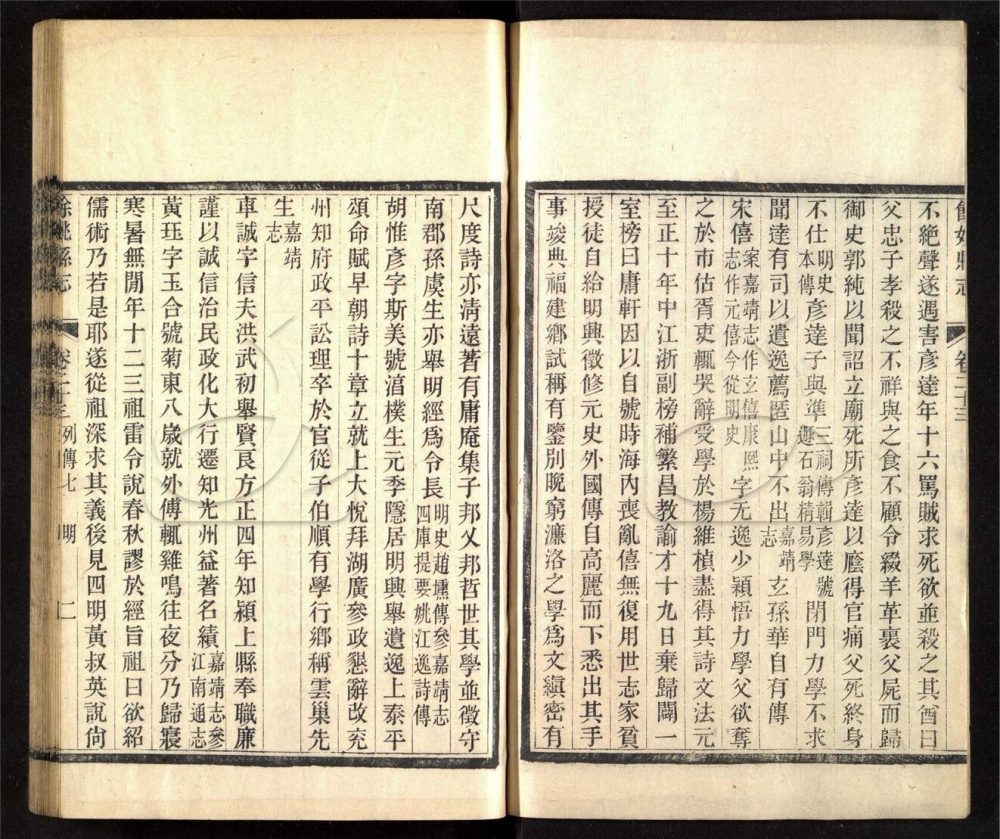 餘姚縣志
卷二十三
不絕聲遂遇害彥達年十六罵賊求死欲並殺之其酋曰
父忠子孝殺之不祥與之食不顧令綴羊革裹父屍而歸
御史郭純以聞詔立廟死所彥達以廕得官痛父死終身
不仕明史本傳彥達子與準三祠傳輯彥達號遯石翁精易學閉門力學不求
聞達有司以遺逸薦匿山中不出嘉靖志玄孫華自有傳
宋僖案嘉靖志作玄僖康熙志作元僖今從明史字无逸少穎悟力學父欲奪
之於市估胥吏輒哭辭受學於楊維楨盡得其詩文法元
至正十年中江浙副榜補繁昌教諭才十九日棄歸闢一
室榜曰庸軒因以自號時海內喪亂僖無復用世志家貧
授徒自給明興徵修元史外國傳自高麗而下悉出其手
事竣典福建鄉試稱有鑒別晚窮濂洛之學爲文縝密有
尺度詩亦清遠著有庸庵集子邦乂邦哲世其學並徵守
南郡孫虞生亦舉明經爲令長明史趙壎傳參嘉靖志四庫提要姚江逸詩傳
胡惟彥字斯美號渲樸生元季隱居明興舉遺逸上泰平
頌命賦早朝詩十章立就上大悅拜湖廣參政懇辭改兖
州知府政平訟理卒於官從子伯順有學行鄉稱雲巢先
生嘉靖志
車誠字信夫洪武初舉賢良方正四年知潁上縣奉職廉
謹以誠信治民政化大行遷知光州益著名績嘉靖志參江南通志
黃珏字玉合號菊東八歲就外傅輒雞鳴往夜分乃歸寢
寒暑無閒年十二三祖雷令說春秋謬於經旨祖曰欲紹
儒術乃若是耶遂從祖深求其義後見四明黃叔英說尙
餘姚縣志
卷二十三
列傳七
明
二